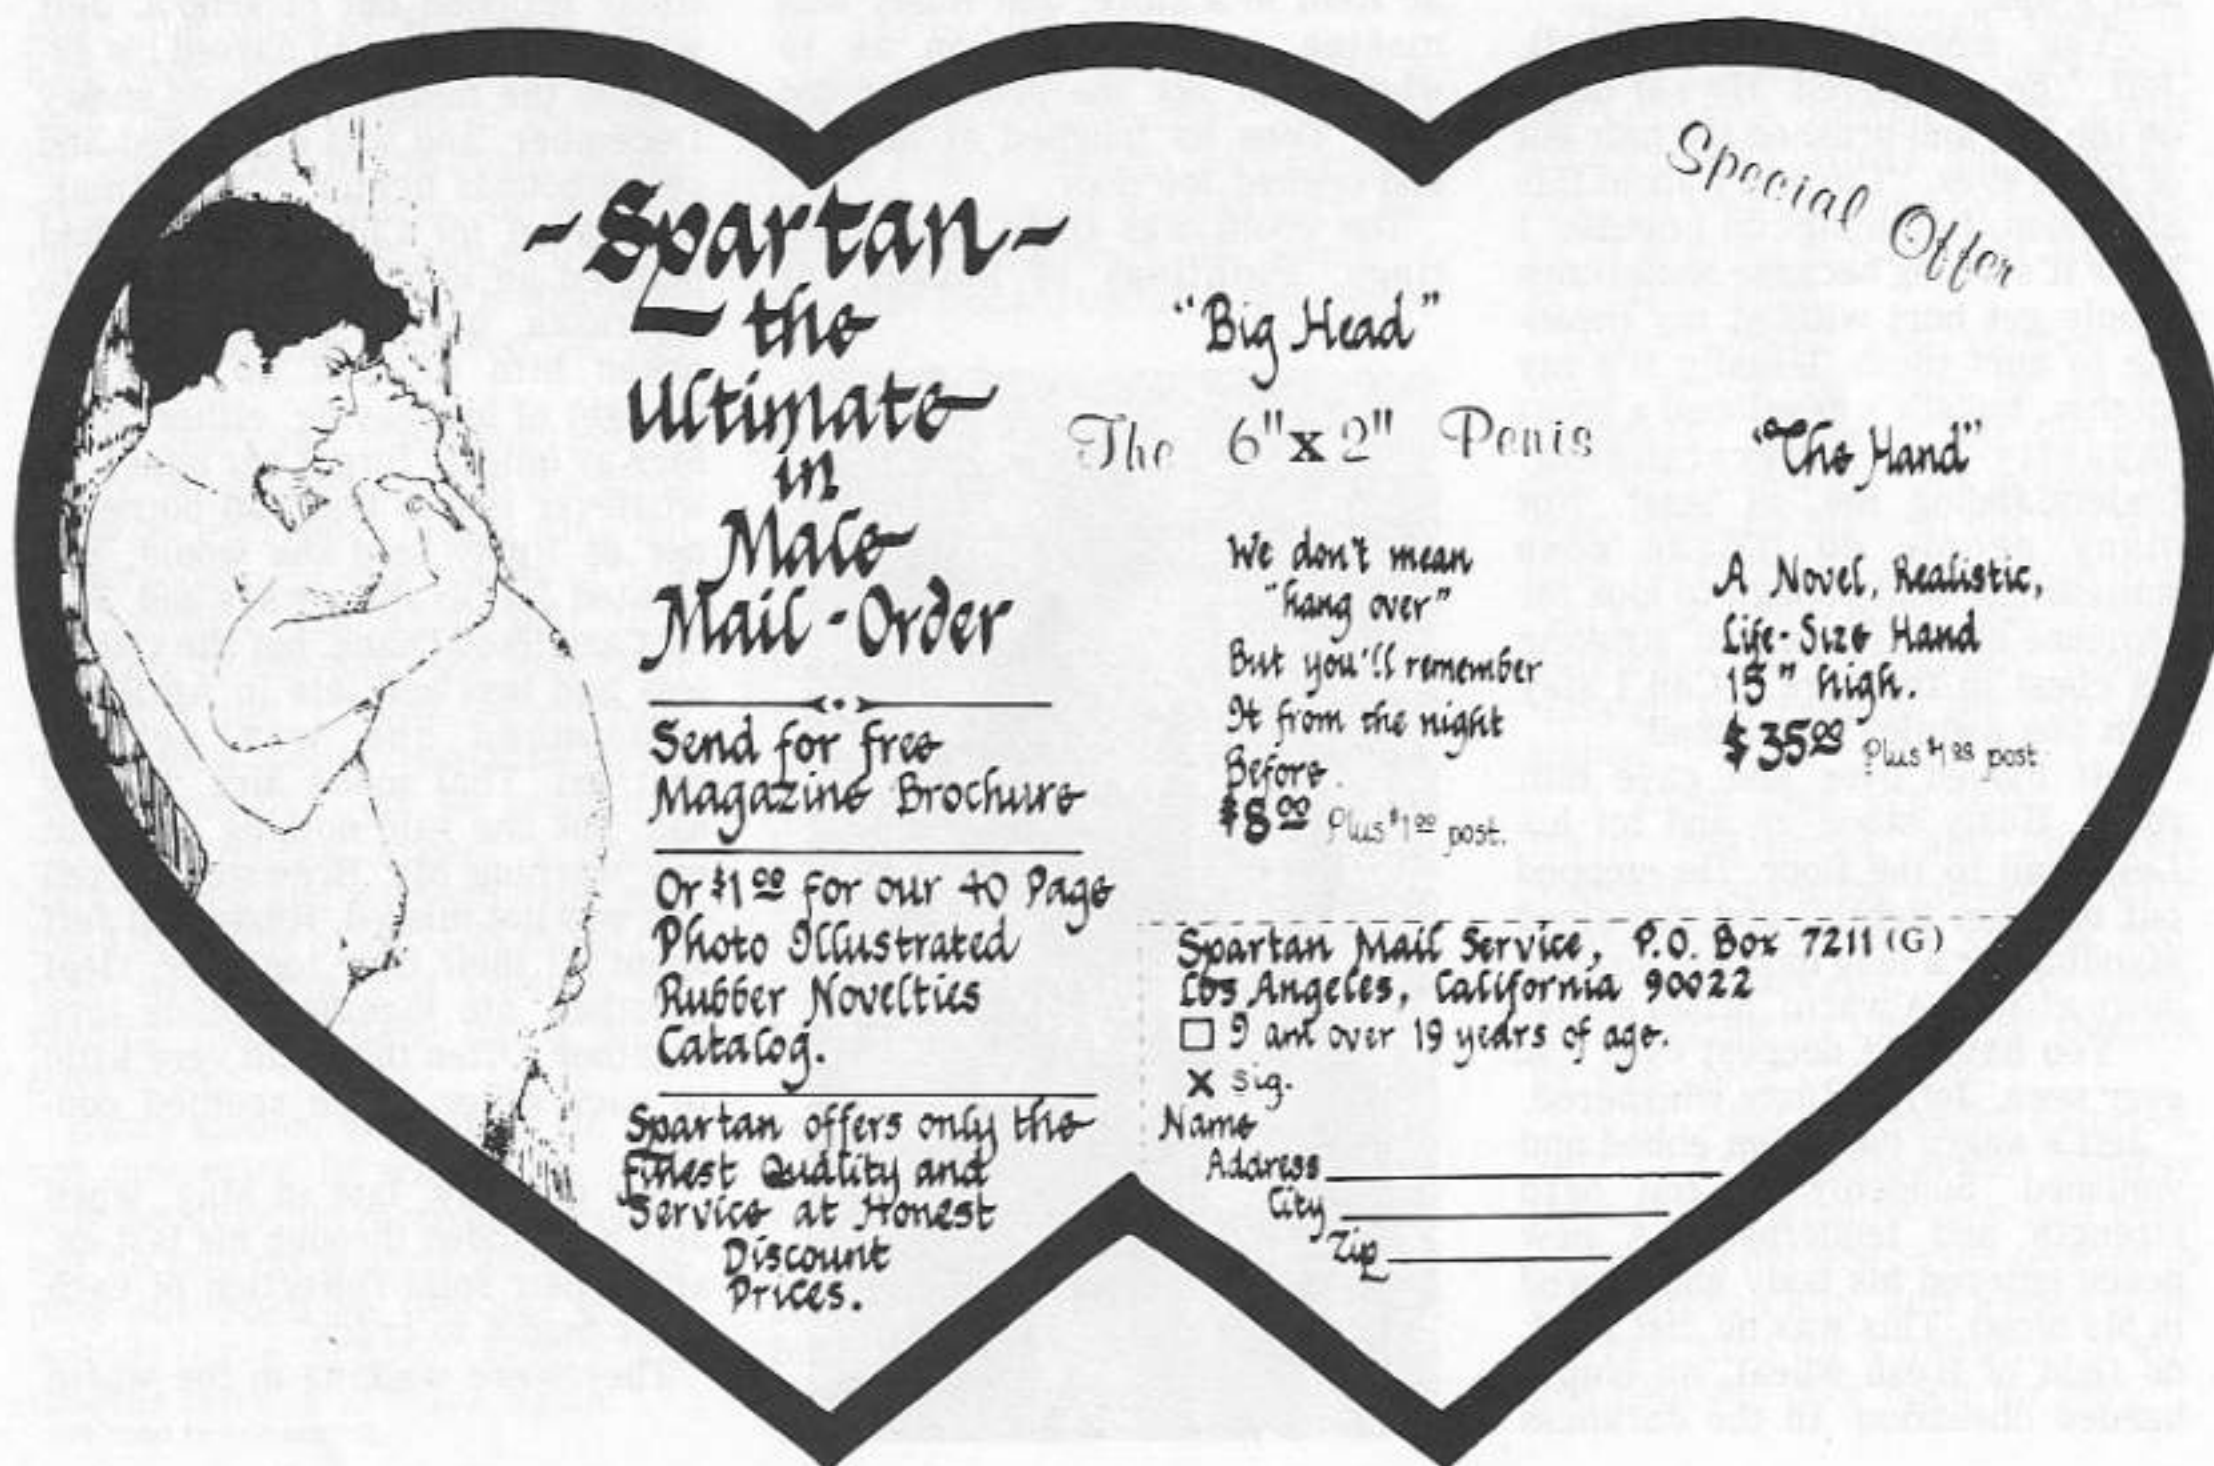 -Spartan-
the
Ultimate
in
Male
Mail-Order
Send for free
Magazine Brochure
Or $1.00 for our 40 Page
Photo Illustrated
Rubber Novelties
Catalog.
Spartan offers only the
Finest Quality and
Service at Honest
Discount
Prices.
Special Offer
"Big Head"
The 6"x2" Penis
We don't mean
"hang over"
But you'll remember
It from the night
Before.
$8.00 Plus $1.00 post.
"The Hand"
A Novel, Realistic,
Life-Size Hand
15" high.
Plus post
Spartan Mail Service, P.O. Box 7211 (G)
Los Angeles, California 90022
I am over 19 years of age.
X sig.
Name
Address
City
Zip